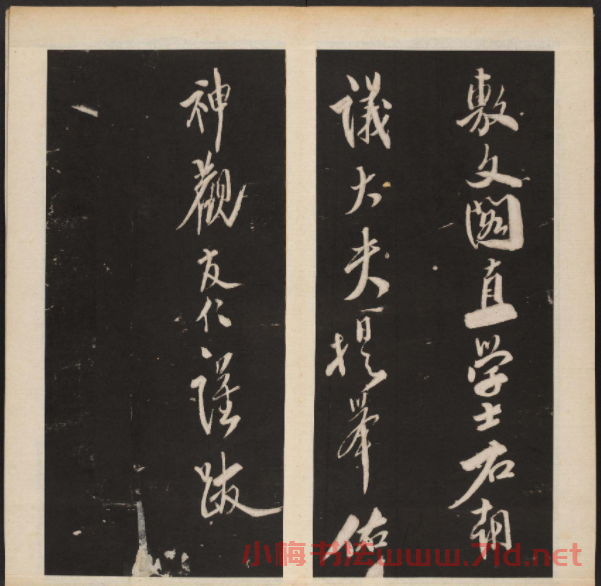 敷文閣直学士右朝
議大夫提舉佑
神觀友仁謹跋
小梅书法www.7ld.net